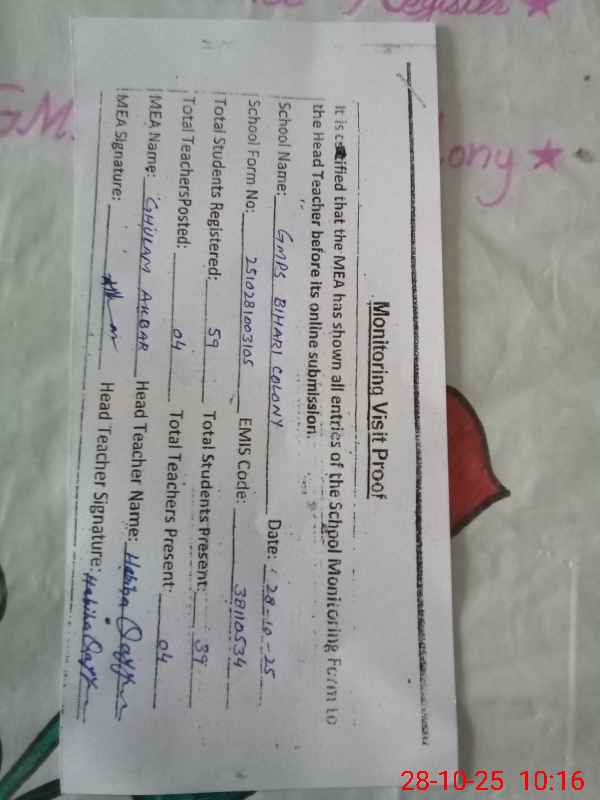 Register ★
GM
ony ★
Monitoring Visit Proof
It is certified that the MEA has shown all entries of the School Monitoring Form to
the Head Teacher before its online submission.
School Name: GMPS BIHARI COLONY Date: 28-10-25
School Form No: 2510281003105 EMIS Code: 38110534
Total Students Registered: 59 Total Students Present: 39
Total TeachersPosted: 04 Total Teachers Present: 04
MEA Name: GHULAM AKBAR Head Teacher Name: Habiba
MEA Signature: Head Teacher Signature: Habiba
28-10-25 10:16